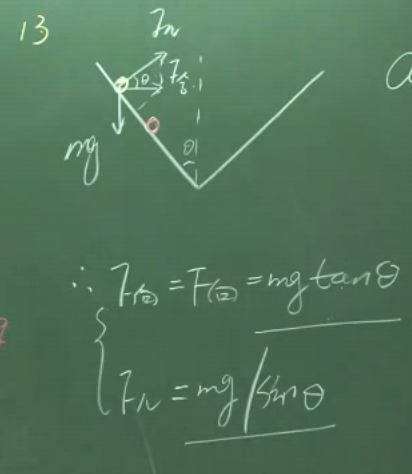 13
Fₙ
θ
F合
mg
θ
a
∴ F合 = F向 = mg tanθ
Fₙ = mg/sinθ